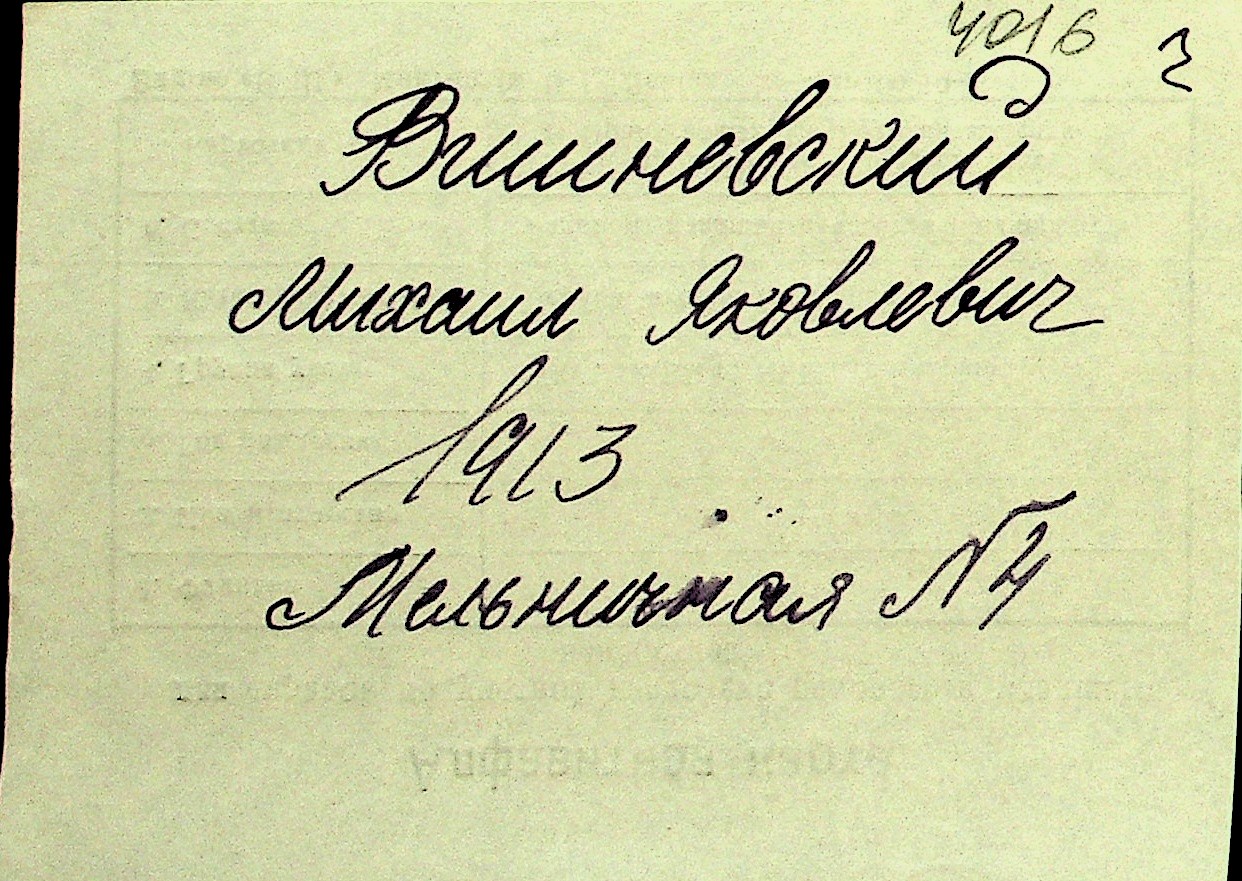 4016
Вишневский
Михаил Яковлевич
1913
Мельничная №4